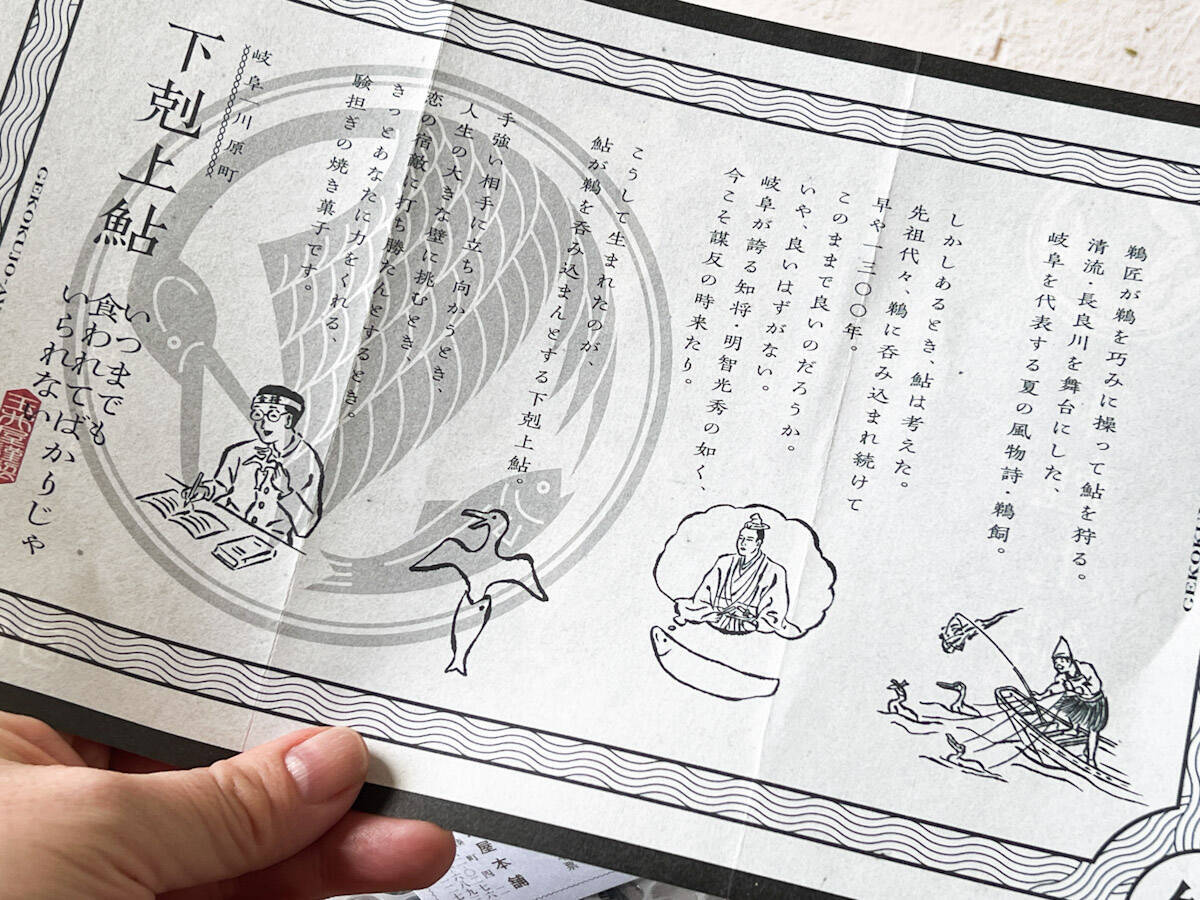 鵜匠が鵜を巧みに操って鮎を狩る。
清流・長良川を舞台にした、
岐阜を代表する夏の風物詩・鵜飼。
しかしあるとき、鮎は考えた。
先祖代々、鵜に呑み込まれ続けて
早や一三〇〇年。
このままで良いのだろうか。
いや、良いはずがない。
岐阜が誇る知将・明智光秀の如く、
今こそ謀反の時来たり。
こうして生まれたのが、
鮎が鵜を呑み込まんとする下剋上鮎。
手強い相手に立ち向かうとき、
人生の大きな壁に挑むとき、
恋の宿敵に打ち勝たんとするとき。
きっとあなたに力をくれる、
験担ぎの焼き菓子です。
岐阜 川原町
下剋上鮎
いつまでも
食われてばかりじゃ
いられない
GEKOKUJO
合格
屋本舗